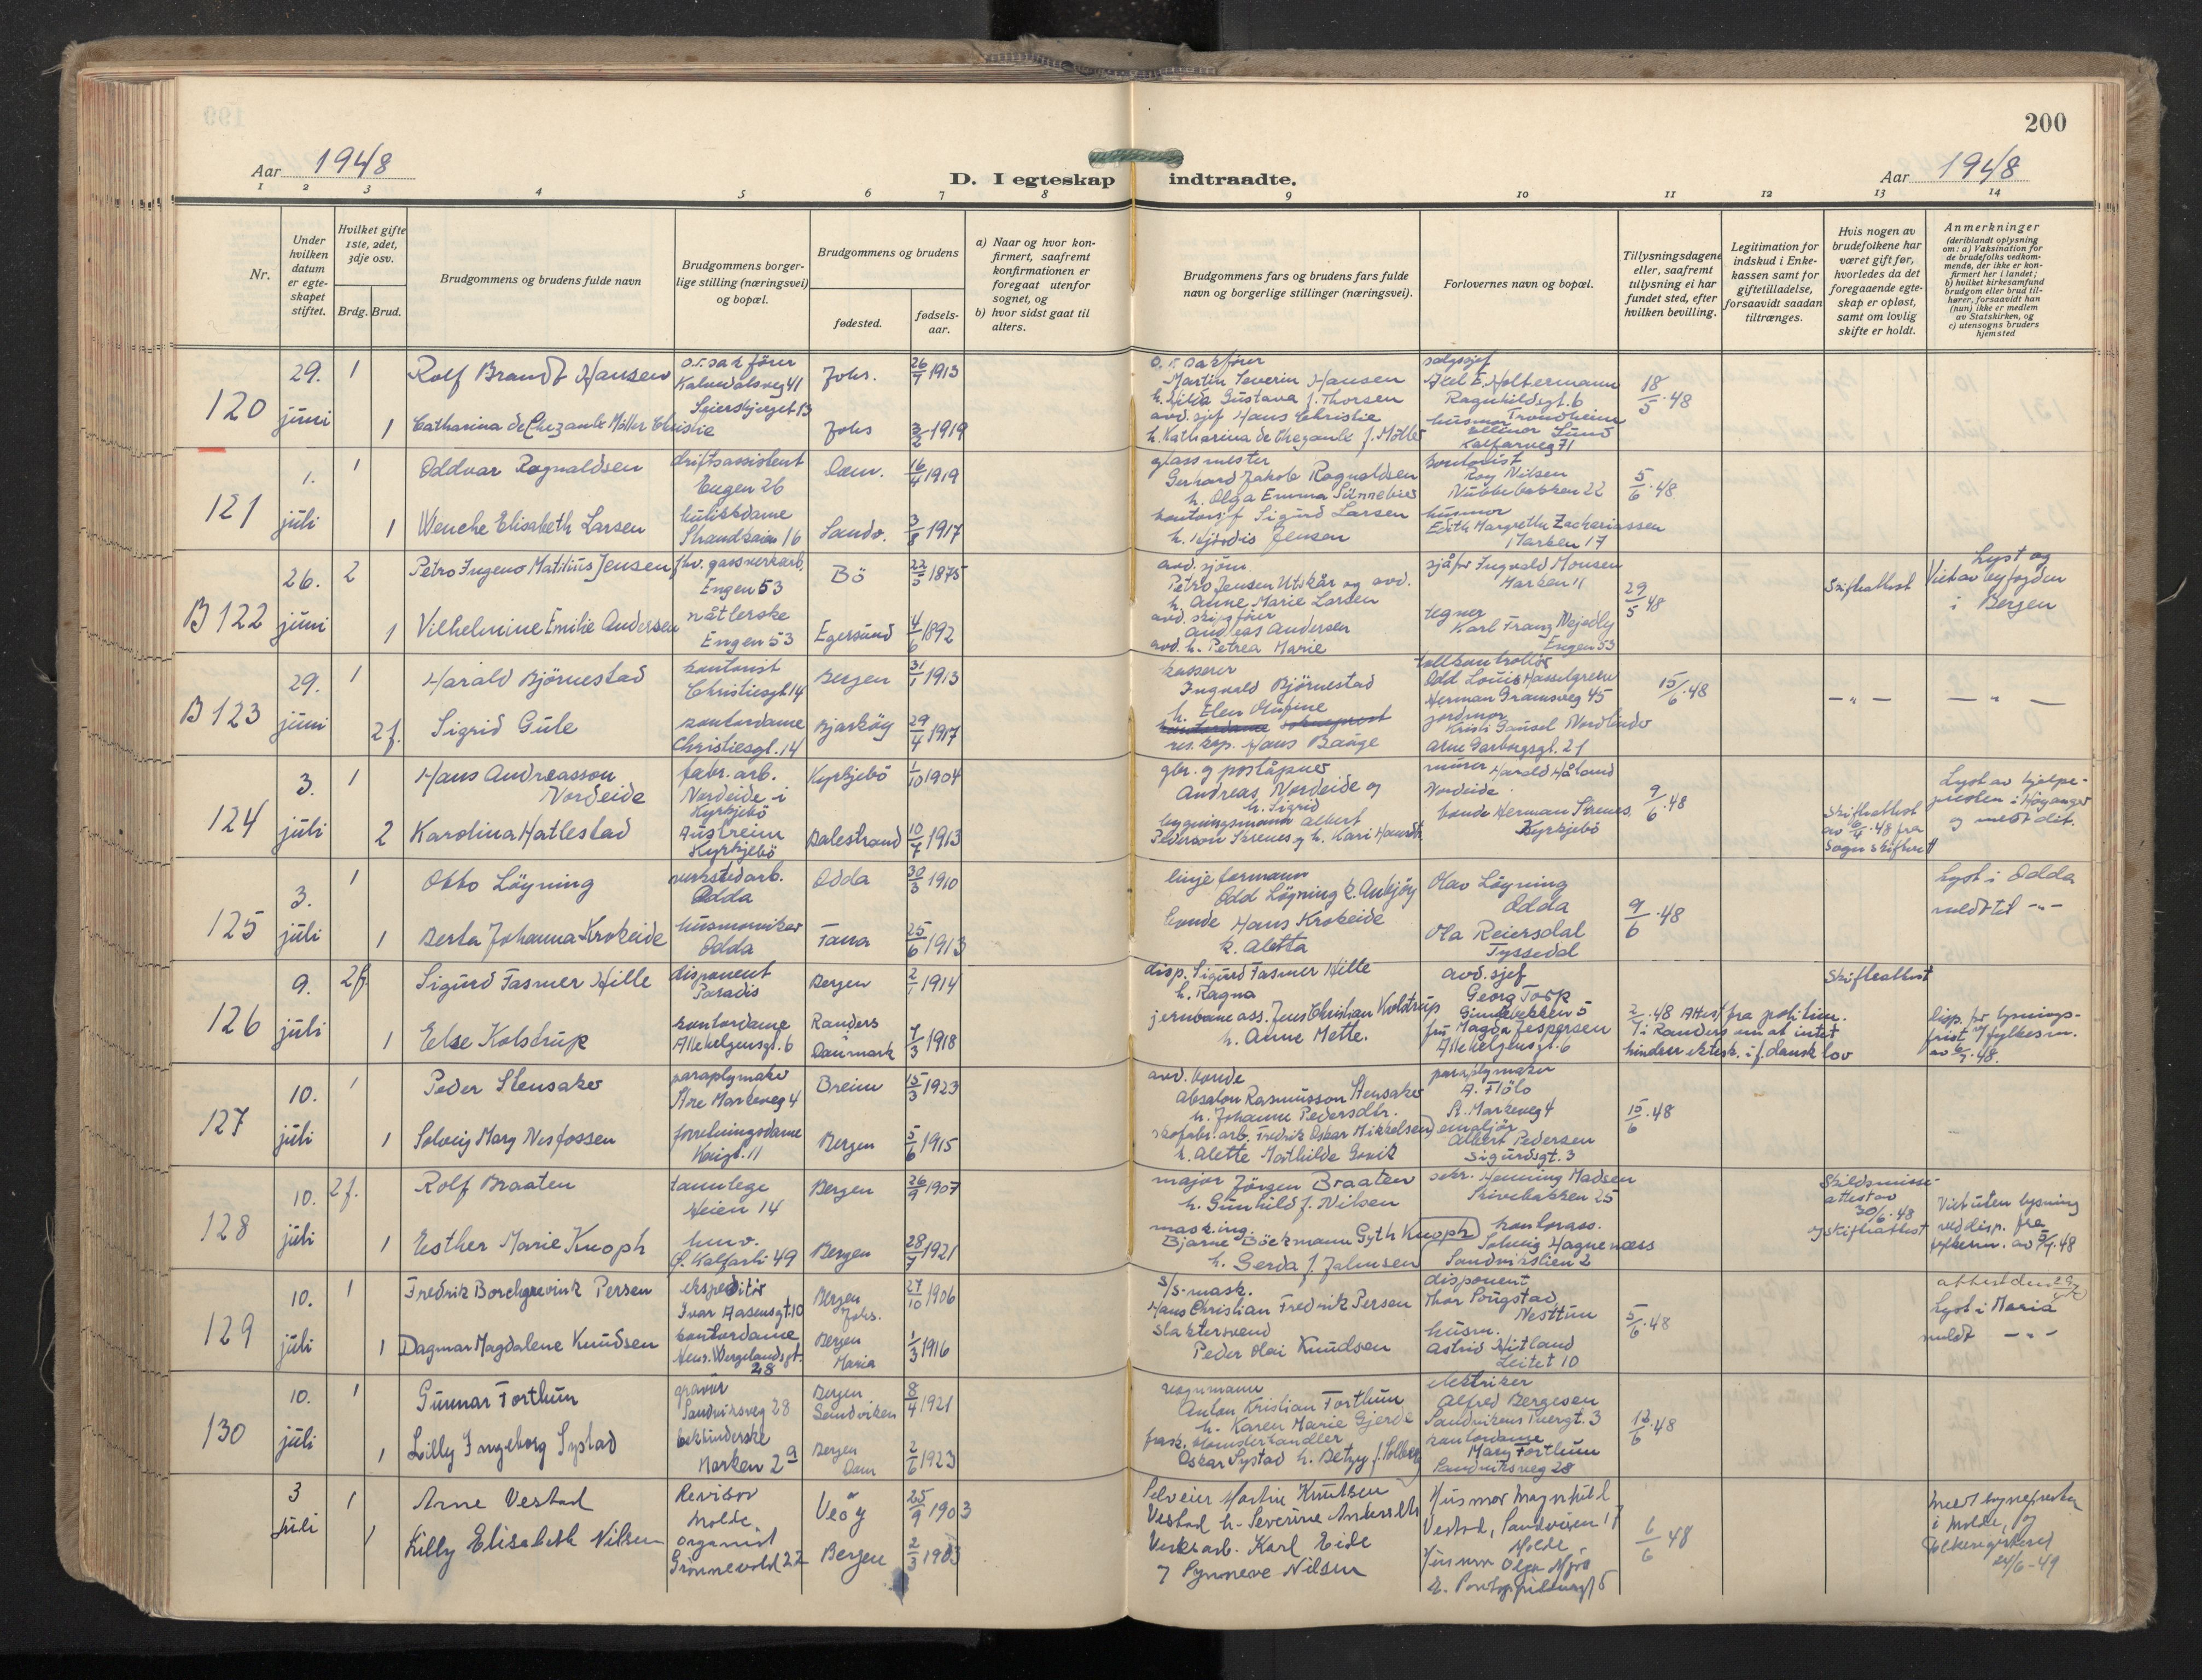 200
Aar 1948
D. I egteskap indtraadte.
Aar 1948
1 2 3 4 5 6 7 8 9 10 11 12 13 14
Nr.
Under hvilken datum er egteskapet stiftet.
Hvilket gifte 1ste, 2det, 3dje osv.
Brdg. Brud.
Brudgommens og brudens fulde navn
Brudgommens borgerlige stilling (næringsvei) og bopæl.
Brudgommens og brudens
fødested.
fødselsaar.
a) Naar og hvor konfirmert, saafremt konfirmationen er foregaat utenfor sognet, og
b) hvor sidst gaat til alters.
Brudgommens fars og brudens fars fulde navn og borgerlige stillinger (næringsvei).
Forlovernes navn og bopæl.
Tillysningsdagene eller, saafremt tillysning ei har fundet sted, efter hvilken bevilling.
Legitimation for indskud i Enkekassen samt for giftetilladelse, forsaavidt saadan tiltrænges.
Hvis nogen av brudefolkene har været gift før, hvorledes da det foregaaende egteskap er opløst, samt om lovlig skifte er holdt.
Anmerkninger
(deriblandt oplysning om: a) Vaksination for de brudefolks vedkommende, der ikke er konfirmert her i landet; b) hvilket kirkesamfund brudgom eller brud tilhører, forsaavidt han (hun) ikke er medlem av Statskirken, og c) utensogns bruders hjemsted
120
29. juni
1
Rolf Brandt Hansen
o.r.sakfører
Kalvedalsveg 41
Johs.
26/7 1913
o.r.sakfører
Martin Severin Hansen
h. Hilda Gustava f. Thorsen
salgssjef
Axel E. Holtermann
Ragnhildsgt. 6
Trondheim
18/5.48
1
Catharina de Chezaule Møller Christie
Seiersbjerget 13
Johs
3/2 1919
avd. sjef Hans Christie
h. Katharina de Chezaule f. Møller
husmor
Ellinor Lund
Kalfarveg 71
121
1. juli
1
Oddvar Ragnaldsen
driftsassistent
Engen 26
Dom.
16/4 1919
glassmester
Gerhard Jakob Ragnaldsen
h. Olga Emma
kontorist
Roy Nilsen
Nubbebakken 22
5/6.48
1
Wenche Elisabeth Larsen
Strandkaien 16
Sandv.
3/8 1917
kontorsjef Sigurd Larsen
h. Hjørdis Jensen
husmor
Edith Margrethe Zachariassen
Marken 17
B 122
26. juni
2
Petro Ingeno Matilius Jensen
fhv. gassverkarb.
Engen 53
Bö
22/5 1875
avd. sjøm.
Petro Jensen Utskår og avd.
h. Anne Marie Larsen
sjåfør Ingvald Monsen
Marken 11
29/5 48
Skifteattest
Lyst og
Viet av byfogden
i Bergen
1
Vilhelmine Emilie Andersen
nåtlerske
Engen 53
Egersund
4/6 1892
avd. skipsfører
Andreas Andersen
avd. h. Petrea Marie
tegner
Karl Franz Nejedly
Engen 53
B 123
29. juni
1
Harald Björnestad
kontorist
Christiesgt. 14
Bergen
31/1 1913
kasserer
Ingvald Björnestad
h. Elen Olufine
tollkontrollör
Odd Louis Hasselgreen
Herman Gramsveg 45
15/6.48
— " —
— " —
2f.
Sigrid Gule
kontordame
Christiesgt. 14
Bjarköy
29/4 1917
res. kap. Hans Baage
jordmor
Kristi Gausel Nordlinder
Arne Garborgsgt. 21
124
3. juli
1
Hans Andreasson
Nordeide
fabr. arb.
Nordeide i
Kyrkjebö
Kyrkjebö
1/10 1904
gbr. og poståpner
Andreas Nordeide og
h. Sigrid
murer Harald Håland
Nordeide
9/6.48
Skifteattest
av 6/4.48 fra
Lyst av hjelpe-
presten i Höyanger
og meldt dit.
2
Karolina Hatlestad
Austreim
Kyrkjebö
Balestrand
10/7 1913
bygningsmann Albert
Pederson
bonde Herman
Kyrkjebö
125
3. juli
1
Otto Löyning
verkstedarb.
Odda
Odda
30/3 1910
linjeformann
Odd Löyning
Olav Löyning
Odda
9/6.48
Lyst i Odda
meldt til —"—
1
Berta Johanna Krokeide
Odda
Fana
25/6 1913
bonde Hans Krokeide
k. Aletta
Ola Reiersdal
Tyssedal
126
9. juli
2f
Sigurd Fasmer Hille
disponent
Paradis
Bergen
2/1 1914
disp. Sigurd Fasmer Hille
h. Ragna
avd. sjef
Georg Torp
Skifteattest
1
Else Kolstrup
kontordame
Allehelgensgt. 6
Randers
Danmark
7/3 1918
jernbane ass. Jens Christian Kolstrup
h. Anne Mette.
fru Magda Jespersen
Allehelgensgt. 6
2/7.48 Attest fra politiet
i Randers om at intet
hindrer ektesk. i f. dansk lov
Disp. for lysnings-
frist av fylkesm.
av 6/7.48.
127
10. juli
1
Peder Stensaker
paraplymaker
Store Markeveg 4
Breim
15/3 1923
avd. bonde
Absalon Rasmusson Stensaker
h. Johanne Pedersdtr.
paraplymaker
A. Flölo
St. Markeveg 4
15/6.48
1
Solveig Mary Nesfossen
forretningsdame
Bergen
5/6 1915
skofabr. arb. Fredrik Oskar Mikkelsen
h. Alette Mathilde
Albert Pedersen
Sigurdsgt. 3
128
10. juli
2f.
Rolf Braaten
tannlege
Heien 14
Bergen
26/9 1907
major Jörgen Braaten
h. Gunhild f. Nilsen
sekr. Henning Madsen
Skivebakken 25
Skilsmisse-
attest av
30/6.48
og skifteattest
Viet uten lysning
ved disp. fra
fylkesm. av 5/7.48
1
Esther Marie Knoph
Ø. Kalfarli 49
Bergen
28/7 1921
mask. ing.
Bjarne Böckmann Gyth Knoph
h. Gerda f. Jahnsen
kontorass.
Solveig Hagenæss
Sandvikslien 2
129
10. juli
1
Fredrik Borchgrevink Persen
ekspeditör
Ivar Aasensgt. 10
Bergen
Johs.
27/10 1906
s/s-mask.
Hans Christian Fredrik Persen
disponent
Thor Sougstad
Nesttun
5/6.48
Lyst i Maria
meldt —"—
1
Dagmar Magdalene Knudsen
kontordame
Henr. Wergelandsgt. 28
Bergen
Maria
1/3 1916
slaktersvend
Peder Olai Knudsen
husm.
Astrid Hitland
Leitet 10
130
10. juli
1
Gunnar Forthun
gravör
Sandviksveg 28
Bergen
Sandviken
8/4 1921
Anton Kristian Forthun
h. Karen Marie Gjerde
elektriker
Alfred Bergesen
Sandvikens Tvergt. 3
12/6.48
1
Lilly Ingeborg Systad
Marken 2a
Bergen
Dom
2/6 1923
blomsterhandler
Oskar Systad h. Betzy f. Solberg
kontordame
Mary Forthun
Sandviksveg 28
3 juli
1
Arne Vestad
Revisor
Molde.
Veöy
25/9 1903
Selveier Martin Knutsen
Vestad h. Severine
Husmor Magnhild
Vestad, Sandveien 17
Molde
6/6 48
Meldt sogneprester
i Molde, og
Folkeregisteret
24/6-49
1
Lilly Elisabeth Nilsen
organist
Grönnevold 22
Bergen
2/3 1903
Verksarb. Karl Eide
Synneve Nilsen
Husmor Olga Mjös